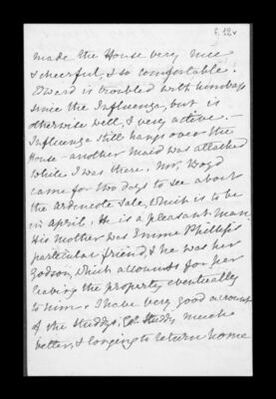 made the House very nice
& cheerful, & so comfortable.
Edward is troubled with lumbago
since the Influenza, but is
otherwise well, & very active. -
Influenza still hangs over the
House - another maid was attacked
while I was there. Mr. Boyd
came for two days to see about
the Ardenote Sale, which is to be
in April. He is a pleasant man
His mother was Emma Phillips's
particular friend, & he was her
Godson, which accounts for her
leaving the property eventually
to him. I have very good account
of the Studdys, Col. Studdy much
better, & longing to return home